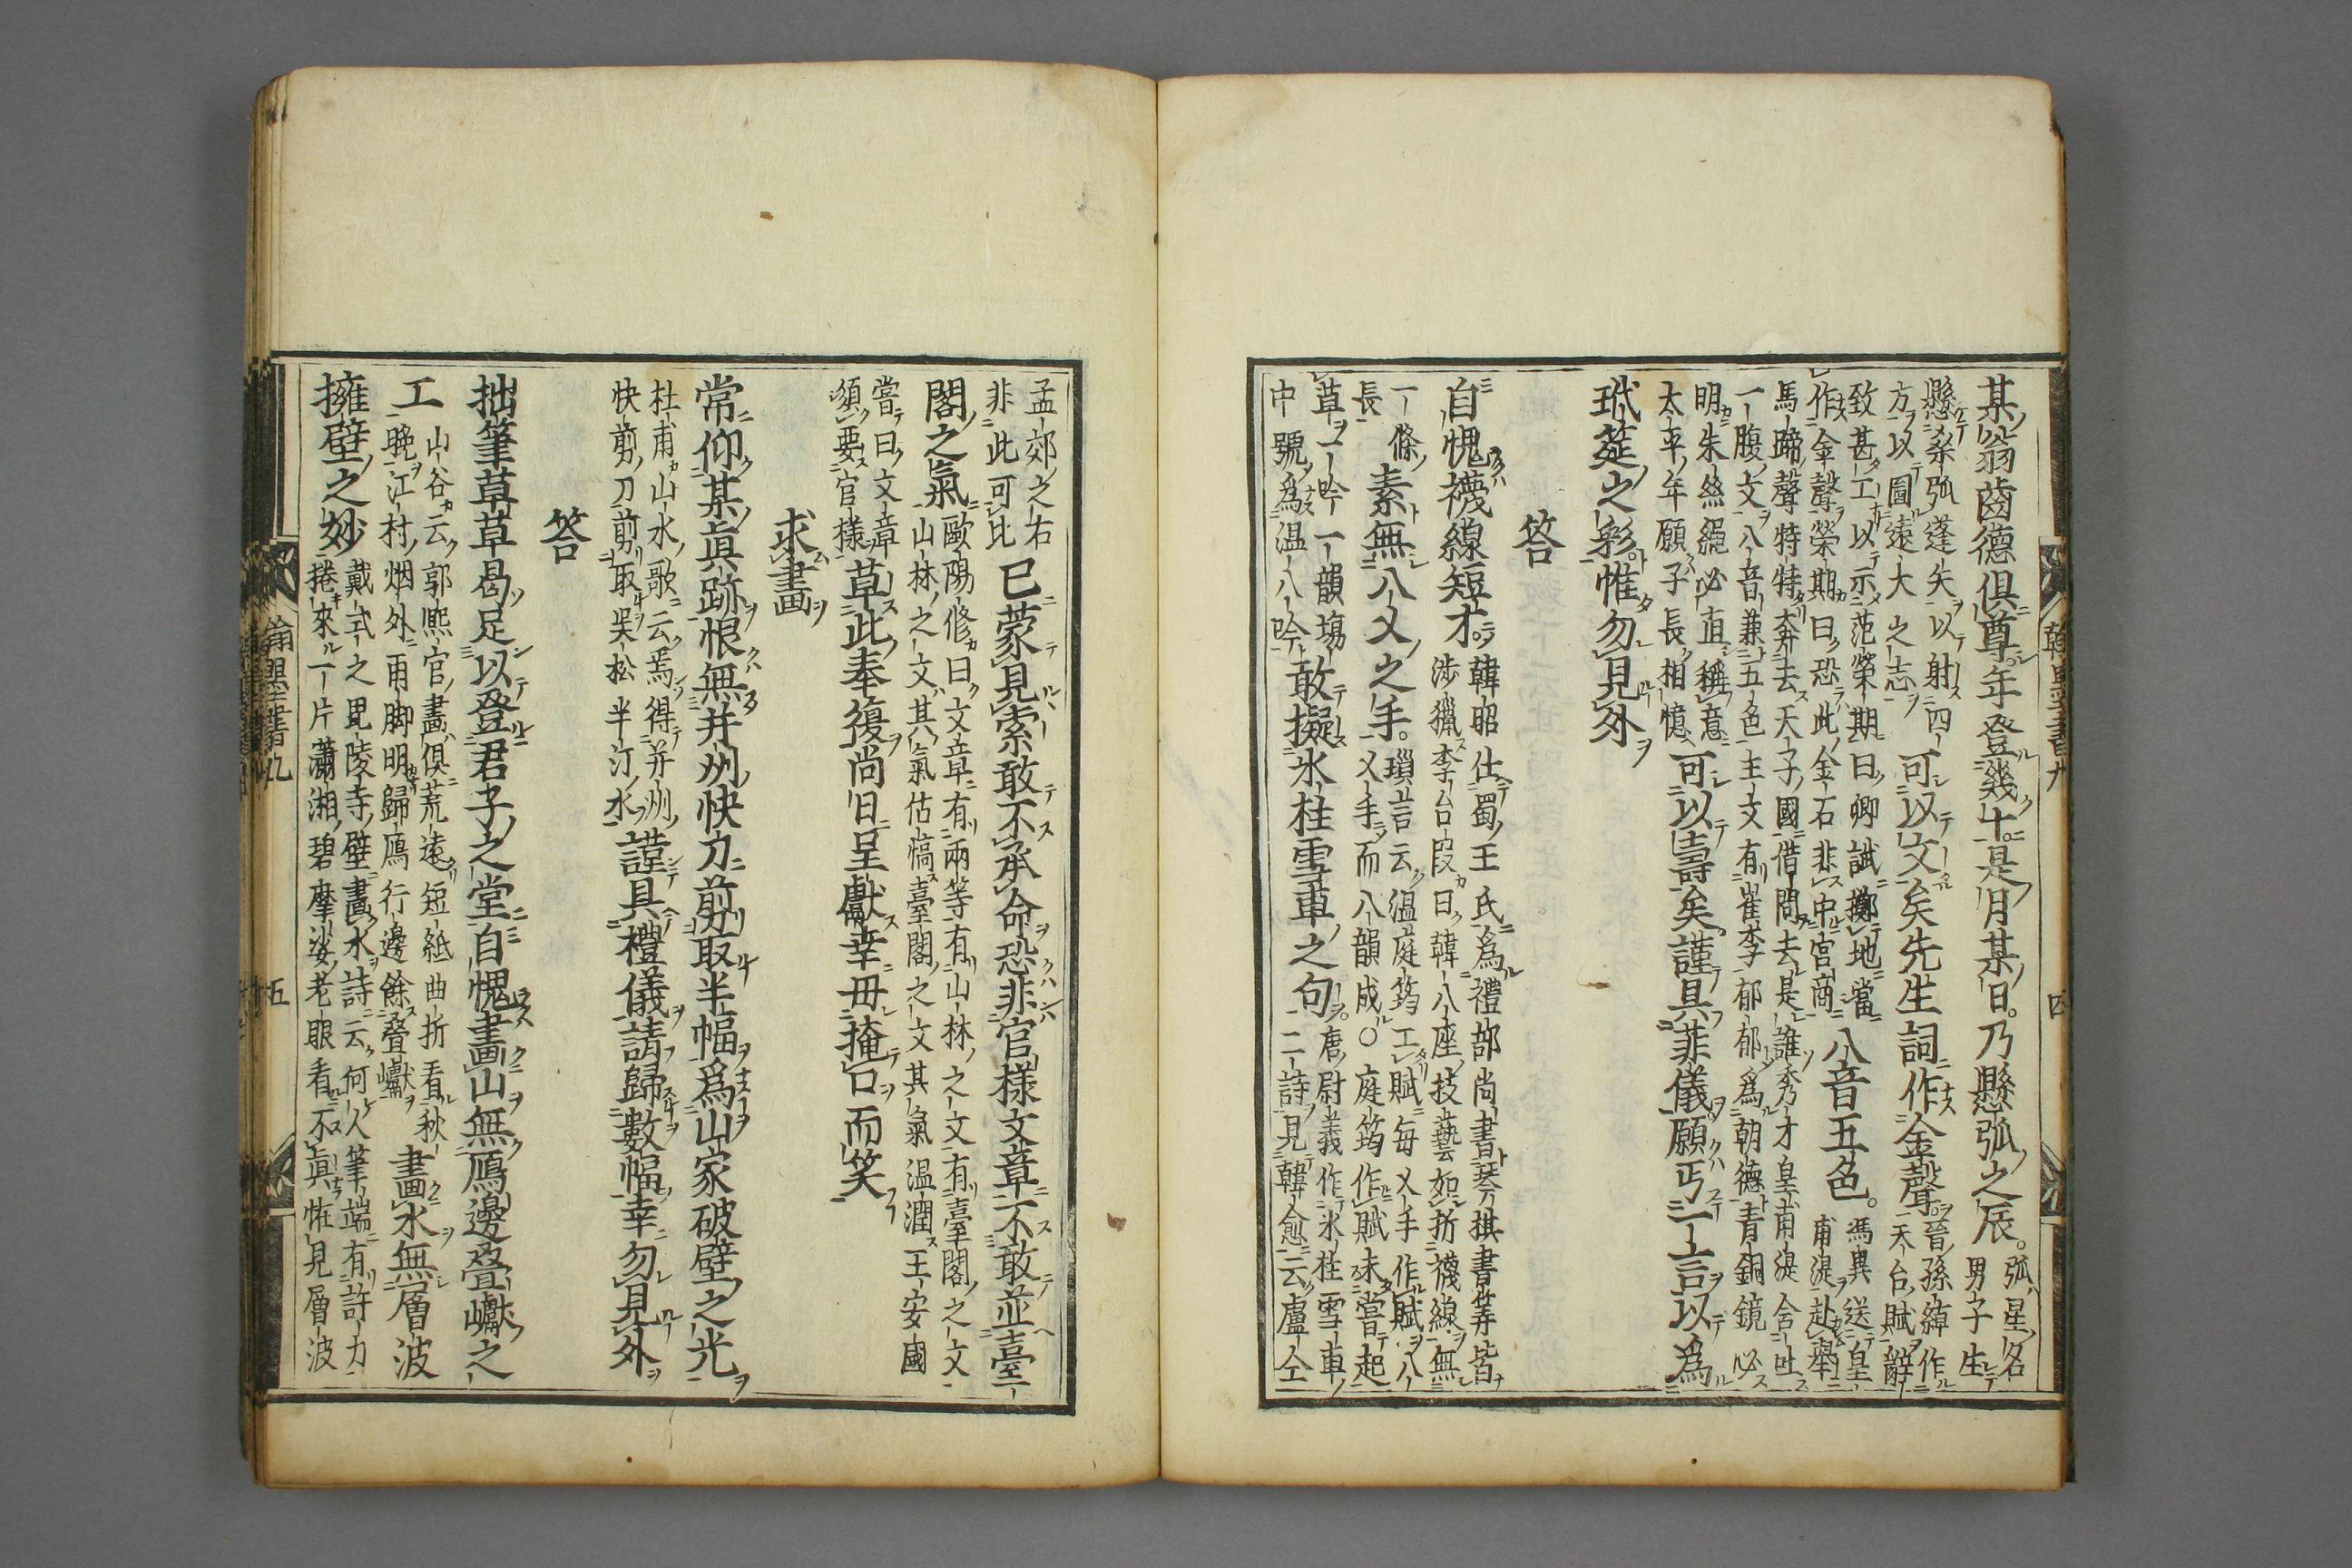 某翁齒德俱尊年登幾十是月某日乃懸弧之辰。弧星名男子生
懸桑弧蓬矢以射四方以圖遠大之志可以文矣先生詞作金聲晉孫綽作天台賦辭
致甚工以示范榮期曰卿試擲地當作金聲榮期曰恐此金石非中宮商八音五色。馮異送皇甫湜赴舉
馬蹄聲特特奔去天子國借問去是誰秀才皇甫湜含吐一腹文八音兼五色主文有崔李郁郁為朝德青銅鏡必
明朱絲繩必直稱意太平年願子長相憶可以壽矣謹具菲儀願丐一言以為
玳筵之彩惟勿見外
答
自愧襪線短才韓昭仕蜀王氏為禮部尚書琴棋書筭皆涉獵李台嘏曰韓八座技藝如拆襪線無
一條長素無八叉之手。瑣言云溫庭筠工賦每叉手作賦八叉手而八韻成○庭筠作賦未嘗起
草一吟一韻場中號為溫八吟敢擬氷柱雪車之句唐尉義作氷柱雪車二詩見韓愈云盧仝
孟郊之右非此可比已蒙見索敢不承命恐非官樣文章不敢並臺
閣之氣歐陽修曰文章有兩等有山林之文有臺閣之文山林之文其氣估槁臺閣之文其氣溫潤王安國
嘗曰文章須要官樣草此奉復尚日呈獻幸毋掩口而笑
求畫
常仰某眞跡恨無并州快刀剪取半幅為山家破壁之光
杜甫山水歌云焉得并州快剪刀剪取吳松半江水謹具禮儀請歸數幅幸勿見外
答
拙筆草草曷足以登君子之堂自愧畫山無鴈邊疊巘之
工山谷云郭熙官畫俱荒遠短紙曲折看秋晚江村烟外雨脚明歸鴈行邊餘疊巘畫水無層波
擁壁之妙戴式之毘陵寺壁畫水詩云何人筆端有許力捲來一片瀟湘碧摩挲老眼看不眞恠見層波
翰墨全書九
四
五